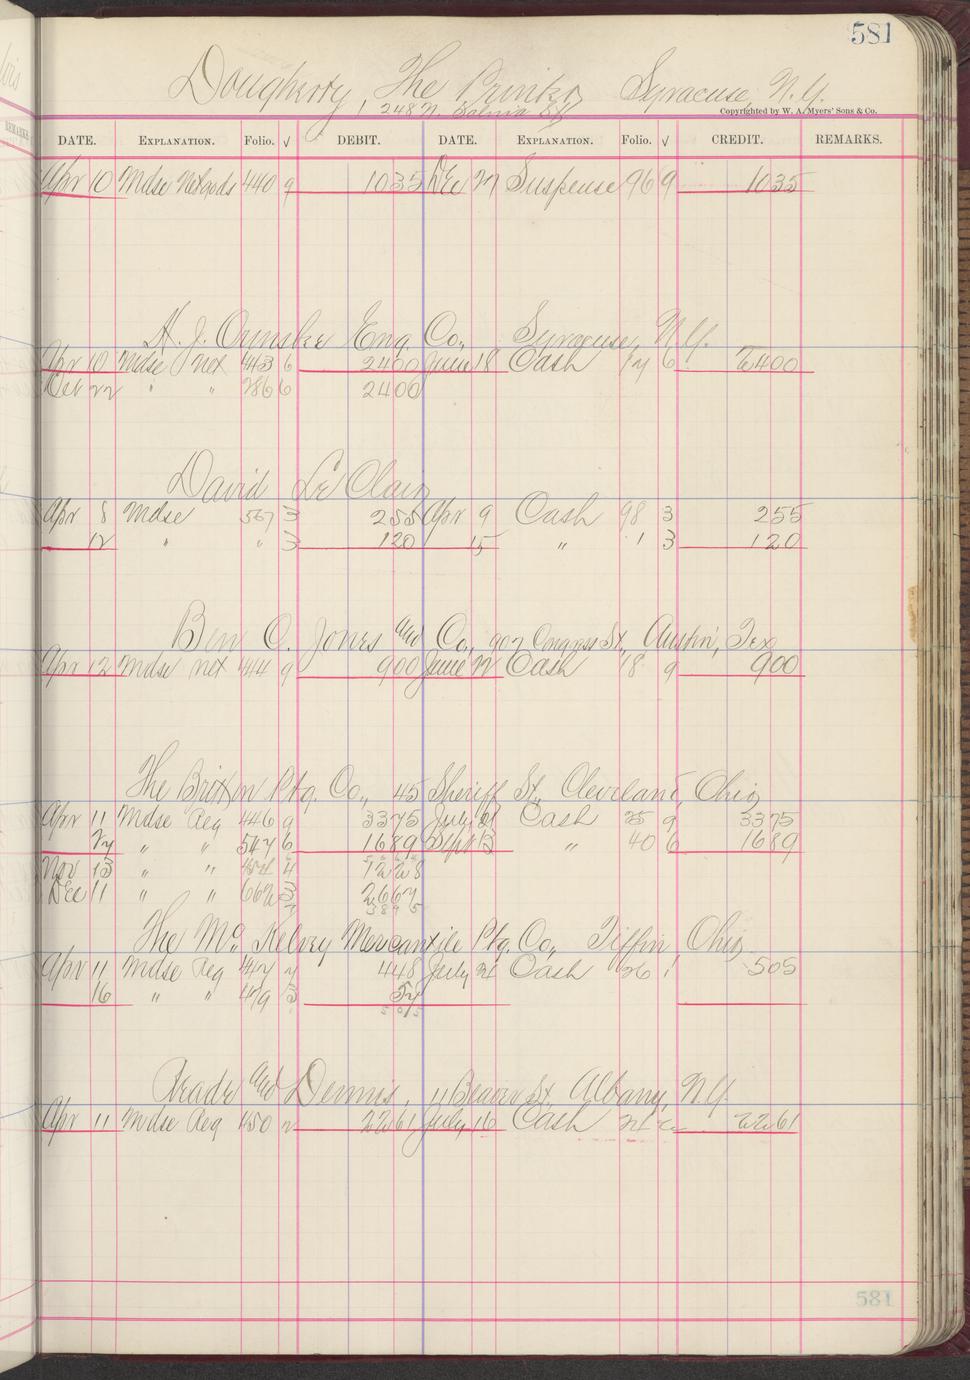 581
Dougherty, The Printer Syracuse, N.Y.
1248 N. Salina St.
Copyrighted by W. A. Myers' Sons & Co.
DATE. EXPLANATION. Folio. √ DEBIT. DATE. EXPLANATION. Folio. √ CREDIT. REMARKS.
Apr 10 Mdse Net 440 9 1035 Dec 27 Suspense 96 9 1035
H. J. Eng. Co., Syracuse, N.Y.
Apr 10 Mdse net 443 6 2400 June 18 Cash 6 2400
Oct 22 " " 286 6 2400
David Le Clair
Apr 8 Mdse 567 3 255 Apr 9 Cash 98 3 255
12 " " 3 120 15 " 1 3 120
Ben C. Jones and Co., 907 Congress St., Austin, Tex
Apr 12 Mdse net 444 9 900 June 22 Cash 18 9 900
The Britton Ptg. Co., 45 Sheriff St., Cleveland, Ohio
Apr 11 Mdse Reg 446 9 3375 July 21 Cash 25 9 3375
24 " " 547 6 1689 Sept 13 " 40 6 1689
Nov 13 " " 4 1228
Dec 11 " " 662 3 2667
3895
The Mc Kelvey Mercantile Ptg. Co., Tiffin Ohio
Apr 11 Mdse Reg 447 448 July 21 Cash 26 1 505
16 " " 479 3 57
505
and Dennis, 11 Beaver St., Albany, N.Y.
Apr 11 Mdse Reg 450 2 2261 July 16 Cash 2261
581